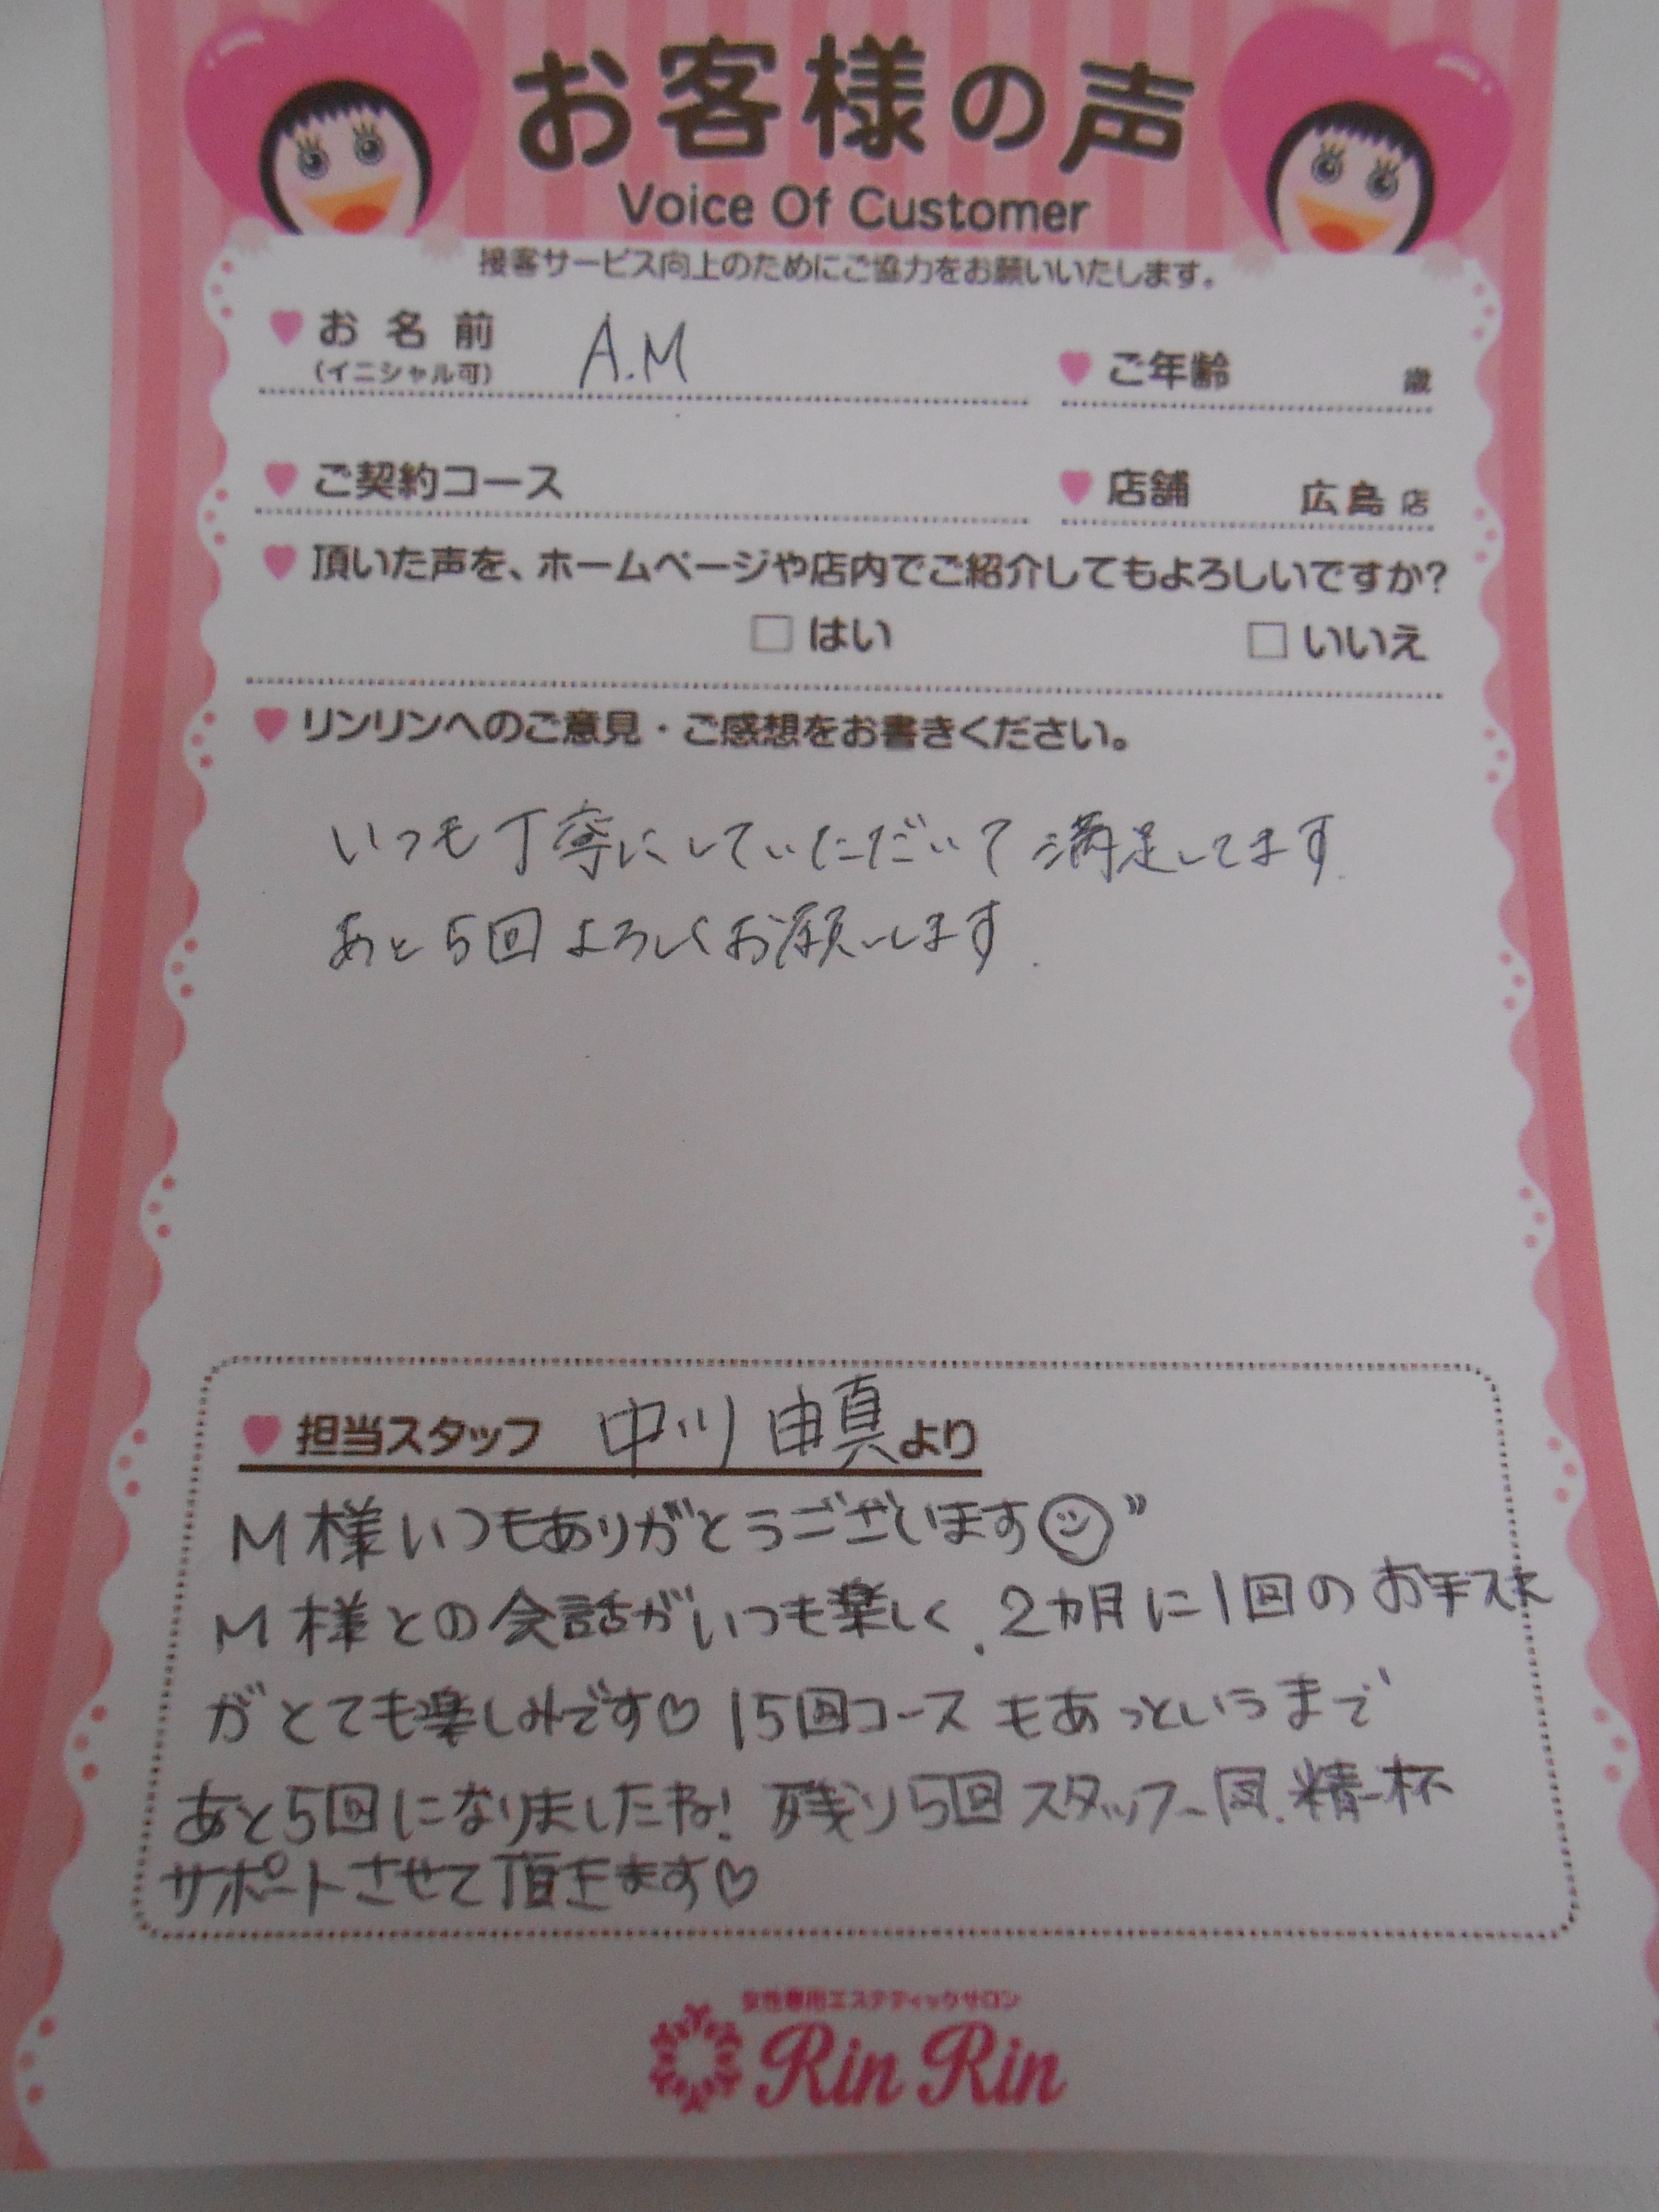 お客様の声
Voice Of Customer
接客サービス向上のためにご協力をお願いいたします。
お名前 A.M ご年齢 歳
(イニシャル可)
ご契約コース 店舗 広島店
頂いた声を、ホームページや店内でご紹介してもよろしいですか?
はい いいえ
リンリンへのご意見・ご感想をお書きください。
いつも丁寧にしていただいて満足してます.
あと5回よろしくお願いします.
担当スタッフ 中川 由真より
M様いつもありがとうございます
M様との会話がいつも楽しく、2カ月に1回のお手入れ
がとても楽しみです♡ 15回コースもあっというまで
あと5回になりましたね! 残り5回スタッフ一同、精一杯
サポートさせて頂きます♡
女性専用エステティックサロン
Rin Rin